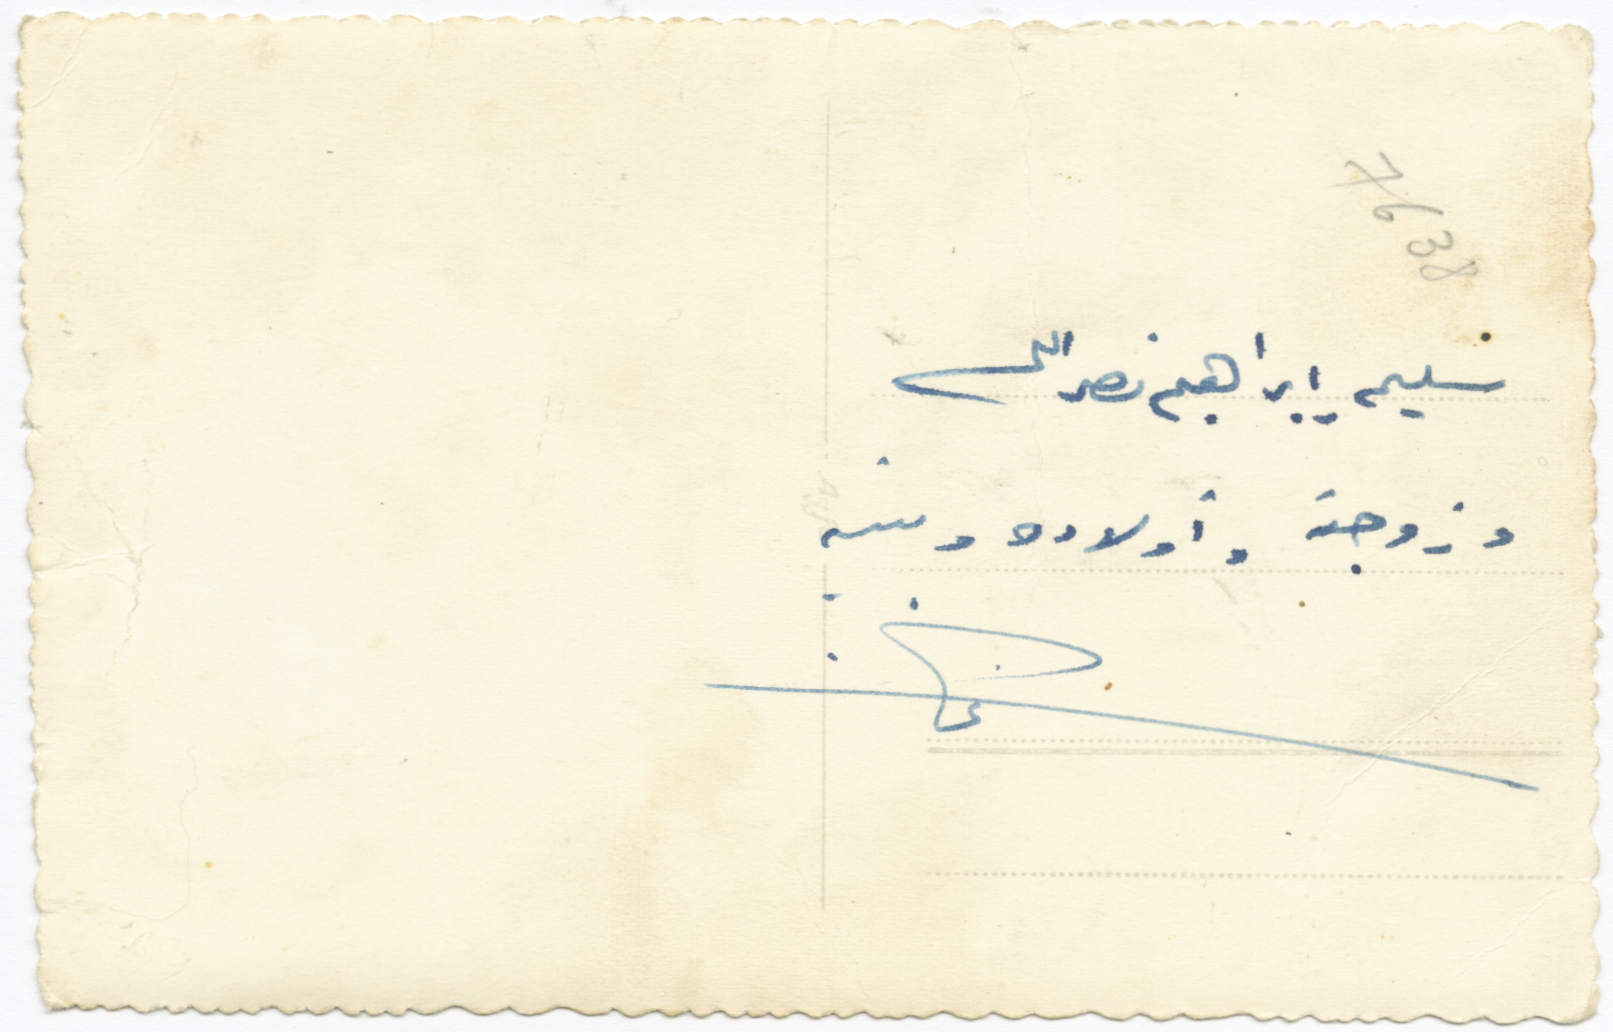 7638
سليم ابراهيم نصر الله
و زوجته و أولاده و